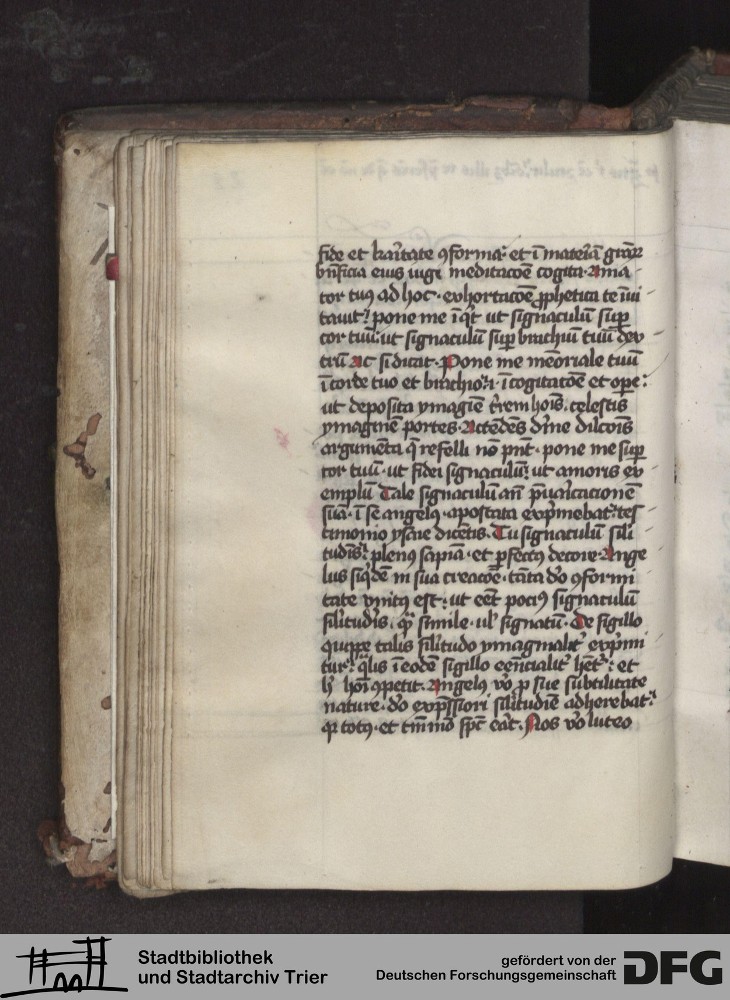 fide et karitate ꝯforma᷒· et ī mater̄iā gr̄aꝝ
bn̄ficia eius iugi meditacōe cogita· Ama
tor tuꝯ ad hoc· exhortacōe ꝓphetica te īui
tauit· pone me īqt̄ ut signaculū suꝑ
cor tuū· ut signaculū suꝑ brachiū tuū dex
trū Ac si dicat· Pone me mēoriale tuū
ī corde tuo et brachio· ī cogitatōe et oꝑe:
ut deposita ymagīe t̄rem hoīs· celestis
ymaginē portes· Attēdēs dīne dilcōīs
argumēta q̄ refelli nō pn̄t· pone me suꝑ
cor tuū· ut fidei signaculū: ut amoris ex
emplū Tale signaculū an̄ p̄uaricacionē
suā· ī se angelꝯ· apostata exp̄mebat· tes
timonio ysaie dicētis· Tu signaculū sili
tudīs: plenꝯ sapīa· et ꝑfectꝯ decore· Ange
lus siqdē in sua creacōe· tāta do̅ ꝯformi
tate vnitꝯ est: ut eēt pociꝯ signaculū
silitudīs· qꝫ simile· ul' signatū· De sigillo
quippe talis silitudo ymaginalit' exp̄mi
tur· q̄lis ī eodē sigillo eēncialit' het̄: et
hoī ꝯpetit· Angelꝯ vo̅ ꝓ sue subtilitate
nature· do̅ exp̄ssiori silitudīe adherebat·
totꝯ· et tm̄mō spc̄ erat· Nos vo̅ luteo
Stadtbibliothek
und Stadtarchiv Trier
gefördert von der
Deutschen Forschungsgemeinschaft
DFG